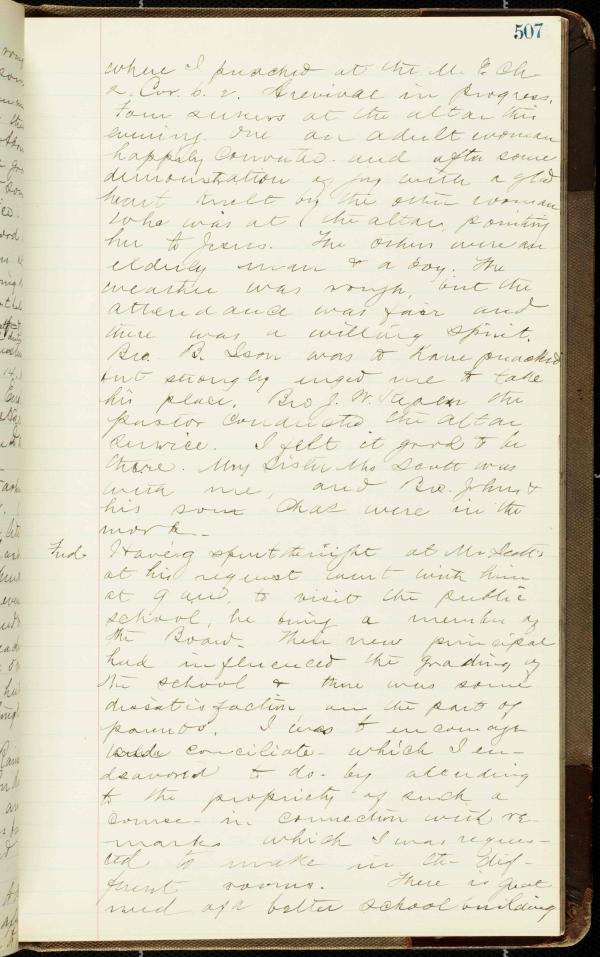 507
where I preached at the M. E. Ch
2. Cor. 6. 2. A revival in progress.
Four seekers at the altar this
evening One an adult woman
happily converted. and after some
demonstration of joy with a glad
heart knelt by the other woman
who was at the altar, pointing
her to Jesus. The others were an
elderly man & a boy. The
weather was rough, but the
attendance was fair and
there was a willing spirit.
Bro. B. Ison was to have preached
but strongly urged me to take
his place. Bro J. W. the
pastor conducted the altar
service. I felt it good to be
there. My Sister Mrs Scott was
with me, and Bro. John &
his son Chas were in the
work.
Frid. Having spent the night at Mr Scott's
at his request went with him
at 9 am, to visit the public
school, he being a member of
the Board. Their new principal
had influenced the grading of
the school & there was some
dissatisfaction on the part of
parents. I was to encourage
conciliate - which I en-
deavored to do - by alluding
to the propriety of such a
course - in connection with re-
marks which I was reques-
ted to make in the dif-
ferent rooms. There is great
need of a better school building